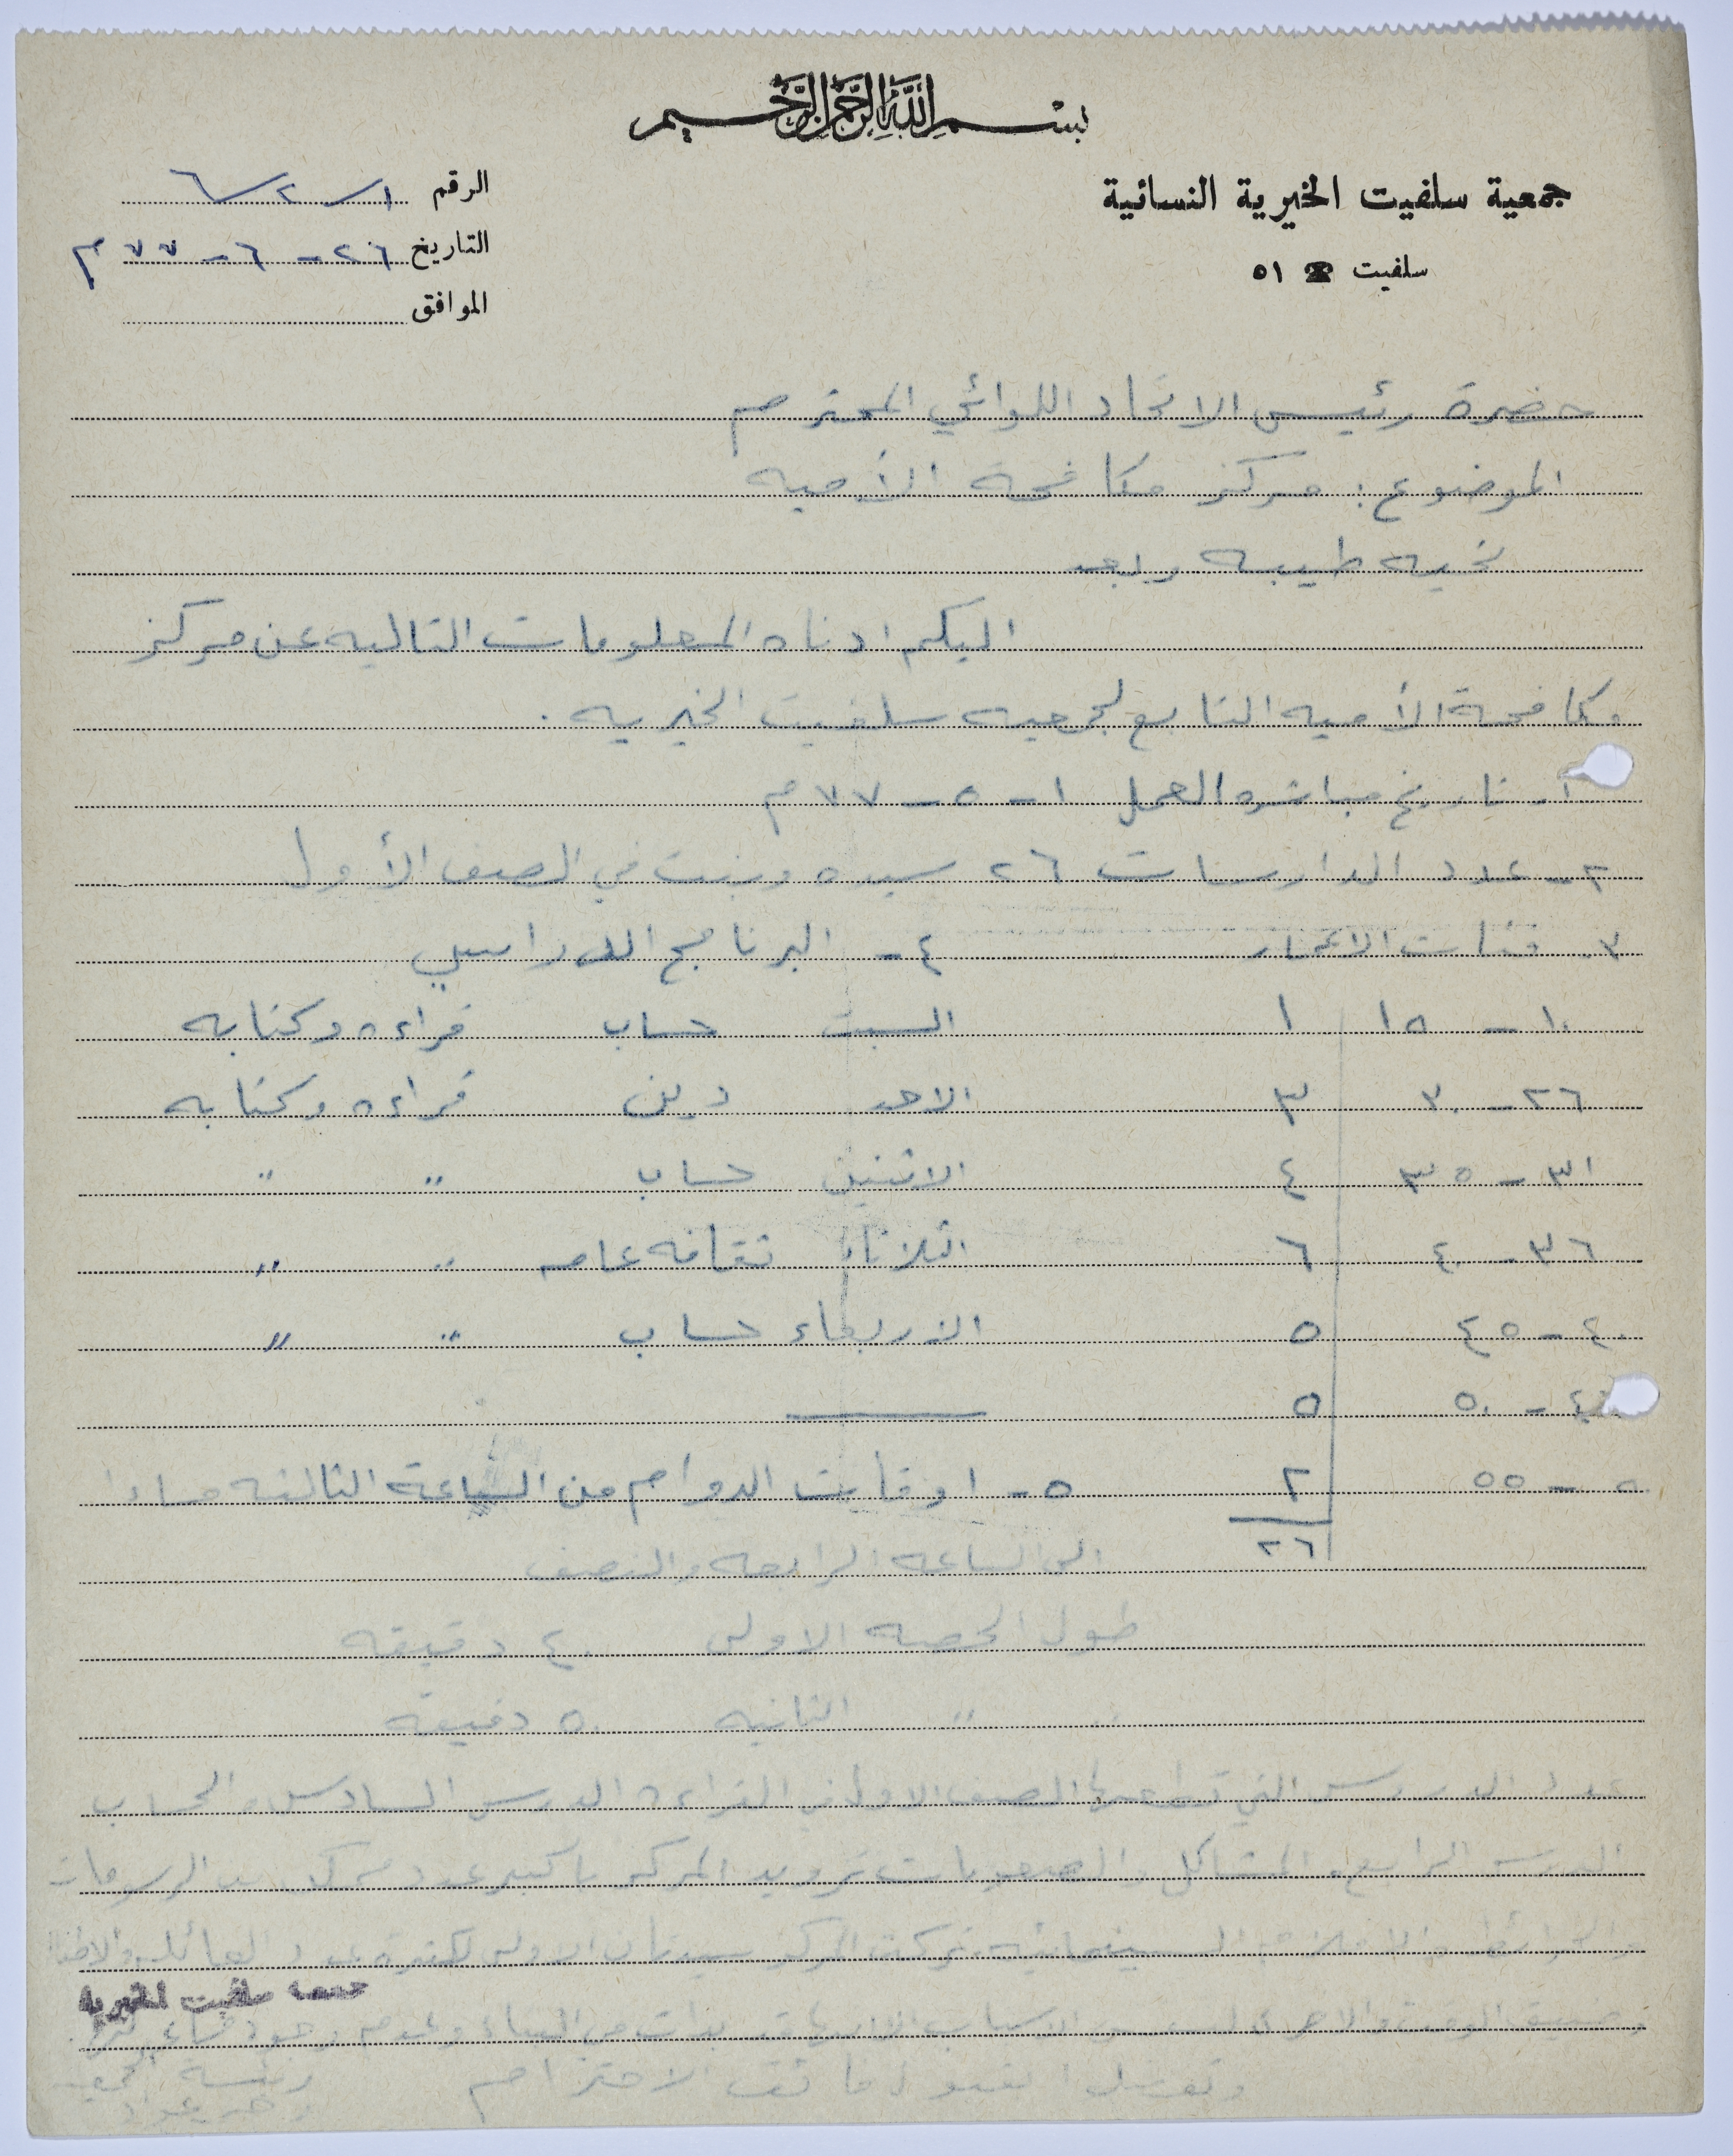 بسم الله الرحمن الرحيم
جمعية سلفيت الخيرية النسائية
سلفيت ☎ ٥١
الرقم ١/٢/٦
التاريخ ٢٦-٦-٧٧م
الموافق
حضرة رئيس الاتحاد اللوائي المحترم
الموضوع: مركز مكافحة الأميه
تحيه طيبه وبعد
اليكم ادناه المعلومات التاليه عن مركز
مكافحة الأميه التابع لجمعيه سلفيت الخيريه.
١- تاريخ مباشره العمل ١-٥-٧٧م
٢- عدد الدارسات ٢٦ سيده وبنت في الصف الأول
٣- فئات الاعمار ٤- البرنامج الدراسي
١٠-١٥ ١ السبت حساب قراءه وكتابه
٢٦-٣٠ ٣ الاحد دين قراءه وكتابه
٣١-٣٥ ٤ الاثنين حساب " "
٣٦-٤٠ ٦ الثلاثاء ثقافه عامه " "
٤٠-٤٥ ٥ الاربعاء حساب " "
٤٥-٥٠ ٥
٥٠-٥٥ ٢ ٥- اوقات الدوام من الساعة الثالثه مساءا
٢٦ الى الساعه الرابعه والنصف
طول الحصه الاولى ٤٠ دقيقه
" " الثانيه ٥٠ دقيقه
عدد الدروس التي قطعها الصف الاول في القراءه الدرس السادس والحساب
الدرس الرابع. المشاكل والصعوبات تزويد المركز باكبر عدد ممكن من الرسومات
السينمائيه تركت المركز سيدتان الاولى لكثرة عدد العائله
جمعية سلفيت الخيرية
وضيق الوقت والاخرى
وتفضلوا بقبول فائق الاحترام رئيسة الجمعيه